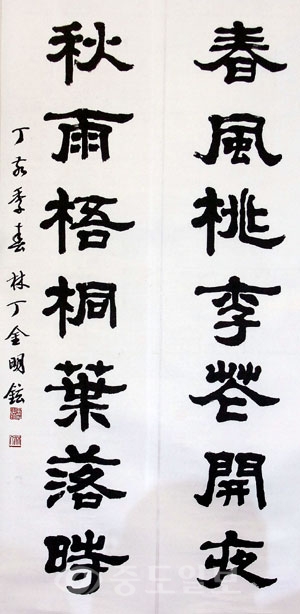 春風桃李花開夜
秋雨梧桐葉落時
丁亥季春 林丁金明鉉
중도일보